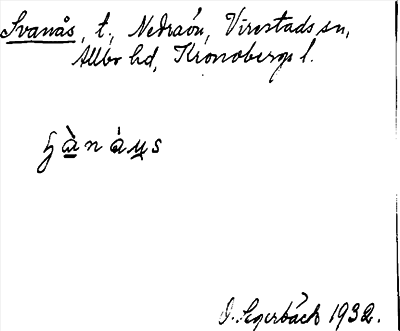 Svanås, t., Nedraön, Virestads sn,
Allbo hd, Kronobergs l.
O. Segerbäck 1932.